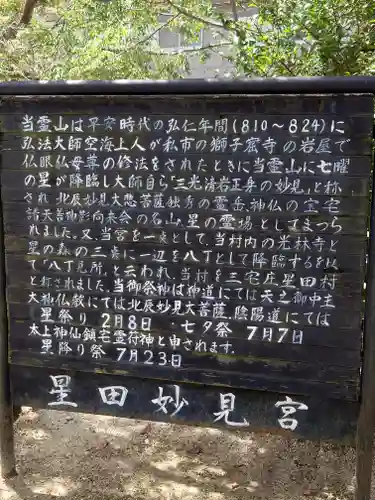 当霊山は平安時代の弘仁年間(810〜824)に
弘法大師空海上人が私市の獅子窟寺の岩屋で
仏眼仏母尊の修法をされたときに当霊山に七曜
の星が降臨し大師自ら"三光清岩正身の妙見"と称
され北辰妙見大悲菩薩独秀の霊岳、神仏の宝宅
諸天善神影向来会の名山、星の霊場としてまつら
れました。又、当宮を一表として、当村内の光林寺と
星の森の三表に一辺を八丁として降臨するを以
て"八丁見所"と云われ、当村を三宅庄星田村
と称されました。当御祭神は神道にては天之御中主
大神仏教にては北辰妙見大菩薩、陰陽道にては
太上神仙鎮宅霊符神と申されます。
星祭り 2月8日・七夕祭 7月7日
星降り祭 7月23日
星田妙見宮